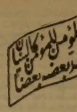 المؤمن للمؤمن كالبنيان
يشد بعضه بعضا